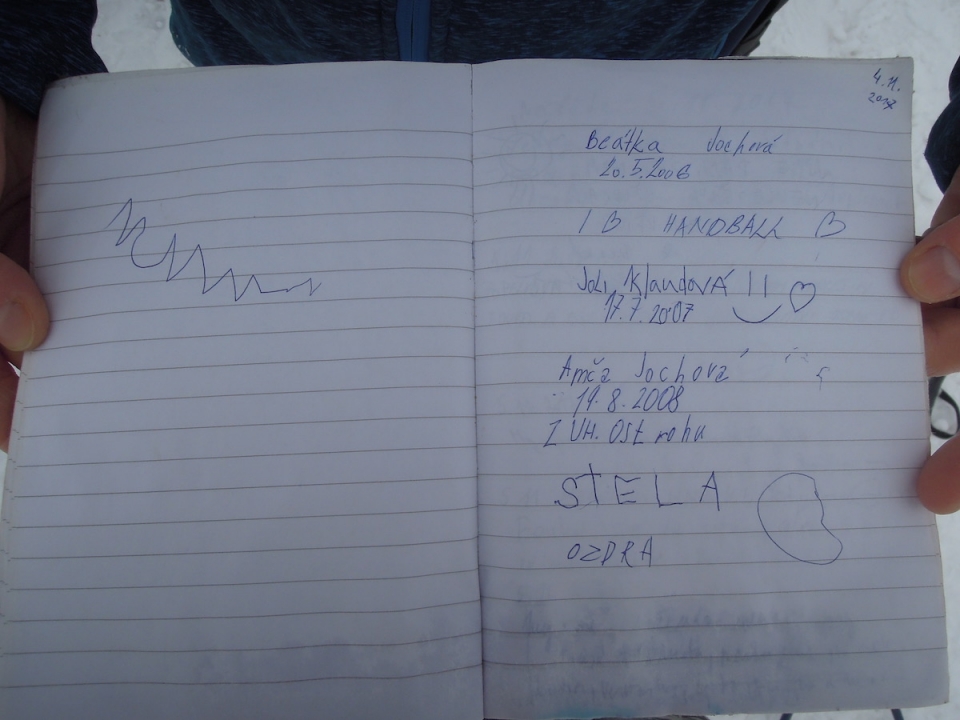 4.11.
2017
Beátka Jochová
20.5.2006
I ♡ HANDBALL ♡
Klaudová !! ♡
17.7.2007
Amča Jochová
19.8.2008
Z UH. Ostrohu
STELA
OZDRA